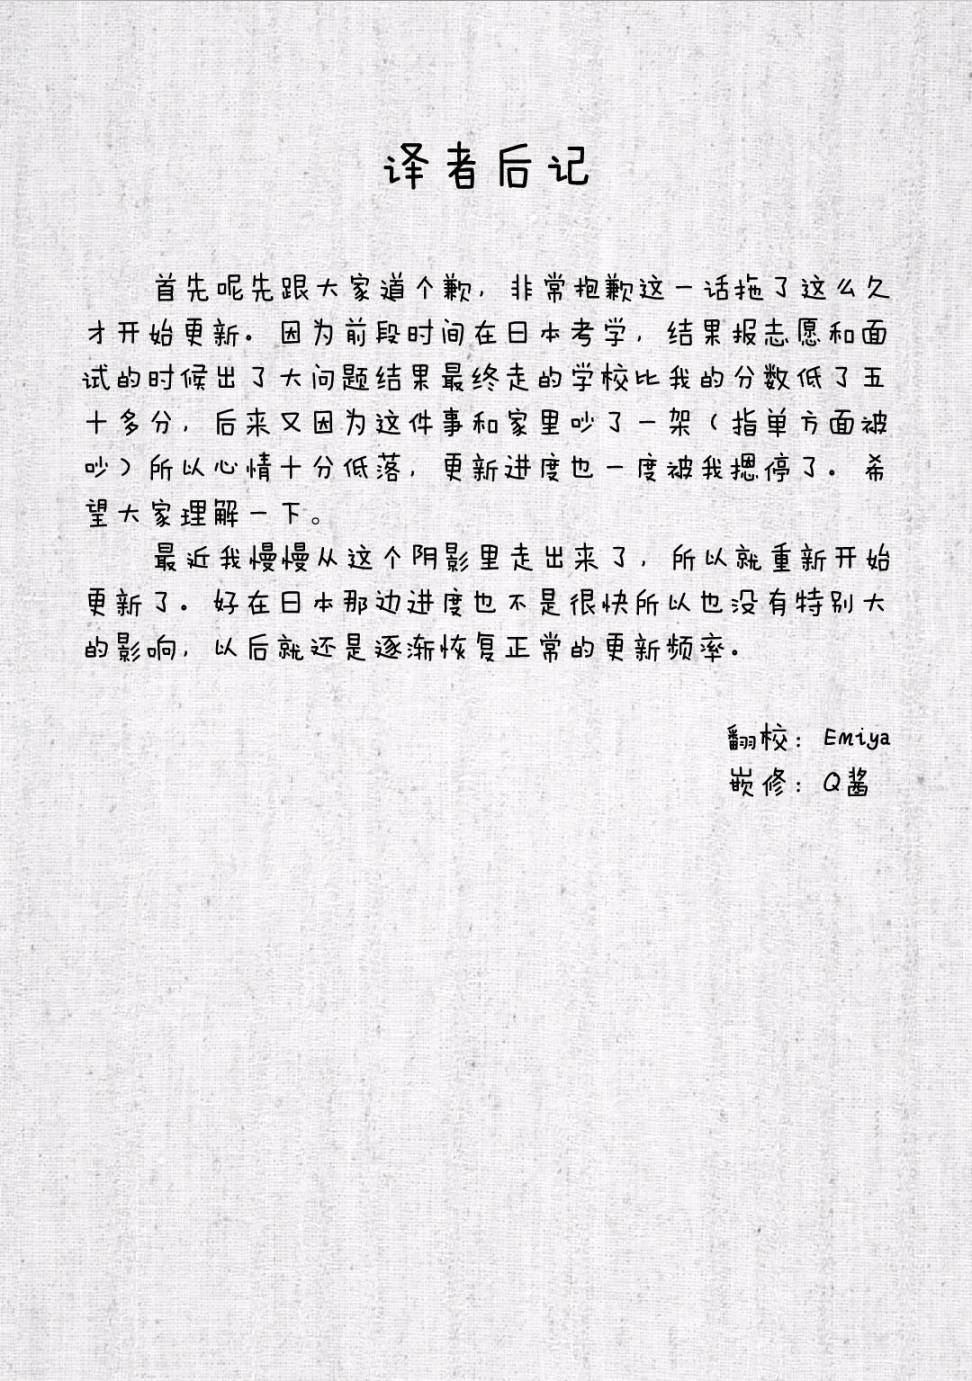 译者后记
首先呢先跟大家道个歉，非常抱歉这一话拖了这么久
才开始更新。因为前段时间在日本考学，结果报志愿和面
试的时候出了大问题结果最终走的学校比我的分数低了五
十多分，后来又因为这件事和家里吵了一架（指单方面被
吵）所以心情十分低落，更新进度也一度被我摁停了。希
望大家理解一下。
最近我慢慢从这个阴影里走出来了，所以就重新开始
更新了。好在日本那边进度也不是很快所以也没有特别大
的影响，以后就还是逐渐恢复正常的更新频率。
翻校：Emiya
嵌修：Q酱